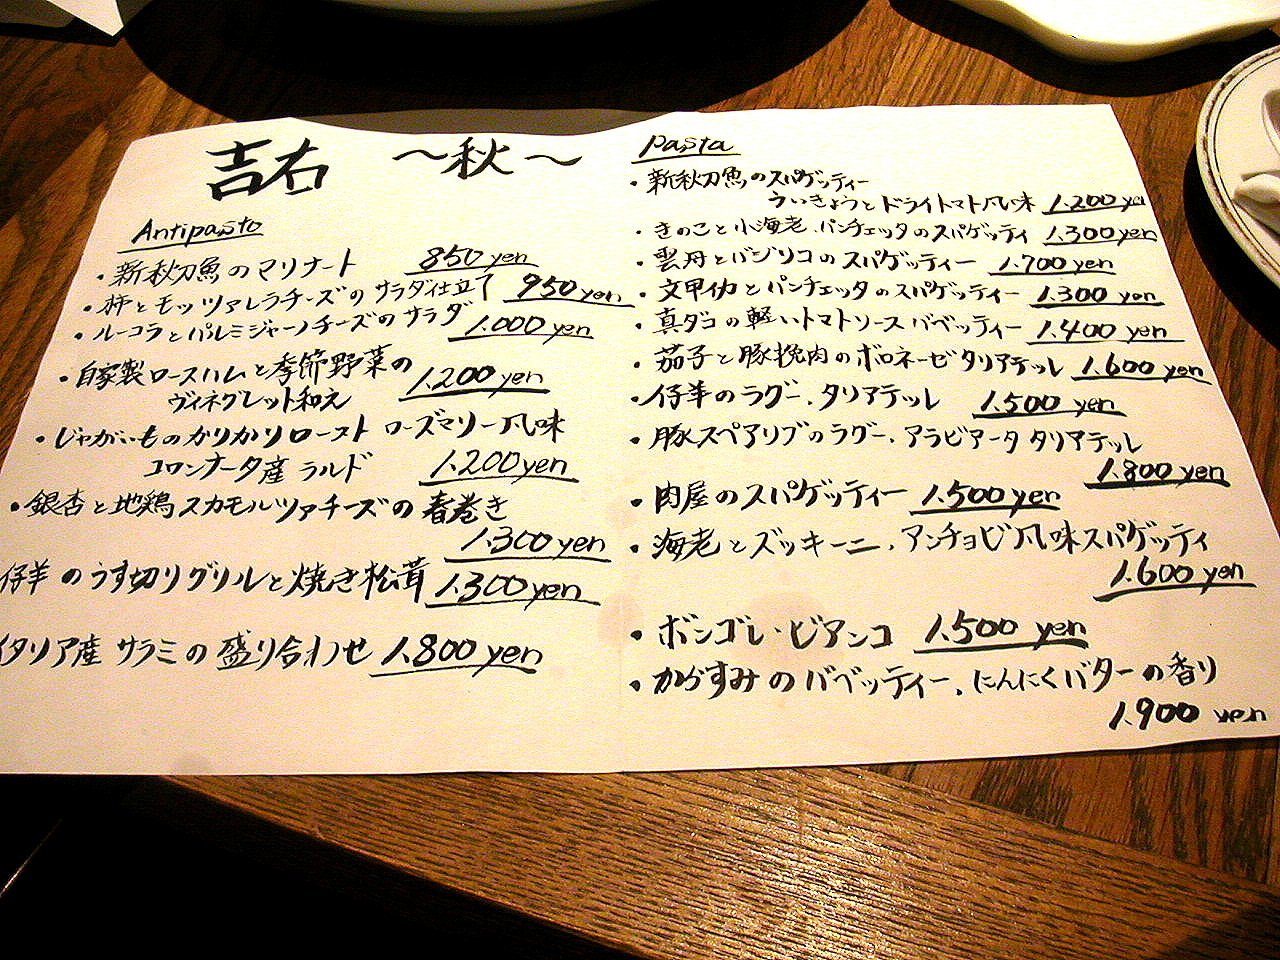 吉右 〜秋〜
Antipasto
・新秋刀魚のマリナート 850 yen
・柿とモッツァレラチーズのサラダ仕立て 950 yen
・ルーコラとパルミジャーノチーズのサラダ 1.000 yen
・自家製ロースハムと季節野菜の
ヴィネグレット和え 1.200 yen
・じゃがいものカリカリロースト ローズマリー風味
コロンナータ産 ラルド 1.200 yen
・銀杏と地鶏スカモルツァチーズの春巻き
1.300 yen
仔羊のうす切りグリルと焼き松茸 1.300 yen
イタリア産 サラミの盛り合わせ 1.800 yen
Pasta
・新秋刀魚のスパゲッティー
ういきょうとドライトマト風味 1.200 yen
・きのこと小海老、パンチェッタのスパゲッティ 1.300 yen
・雲丹とバジリコのスパゲッティー 1.700 yen
・文甲イカとパンチェッタのスパゲッティー 1.300 yen
・真ダコの軽いトマトソース バベッティー 1.400 yen
・茄子と豚挽肉のボロネーゼ タリアテッレ 1.600 yen
・仔羊のラグー、タリアテッレ 1.500 yen
・豚スペアリブのラグー、アラビアータ タリアテッレ
1.800 yen
・肉屋のスパゲッティー 1.500 yen
・海老とズッキーニ、アンチョビ風味スパゲッティ
1.600 yen
・ボンゴレ・ビアンコ 1.500 yen
・からすみのバベッティー、にんにくバターの香り
1.900 yen